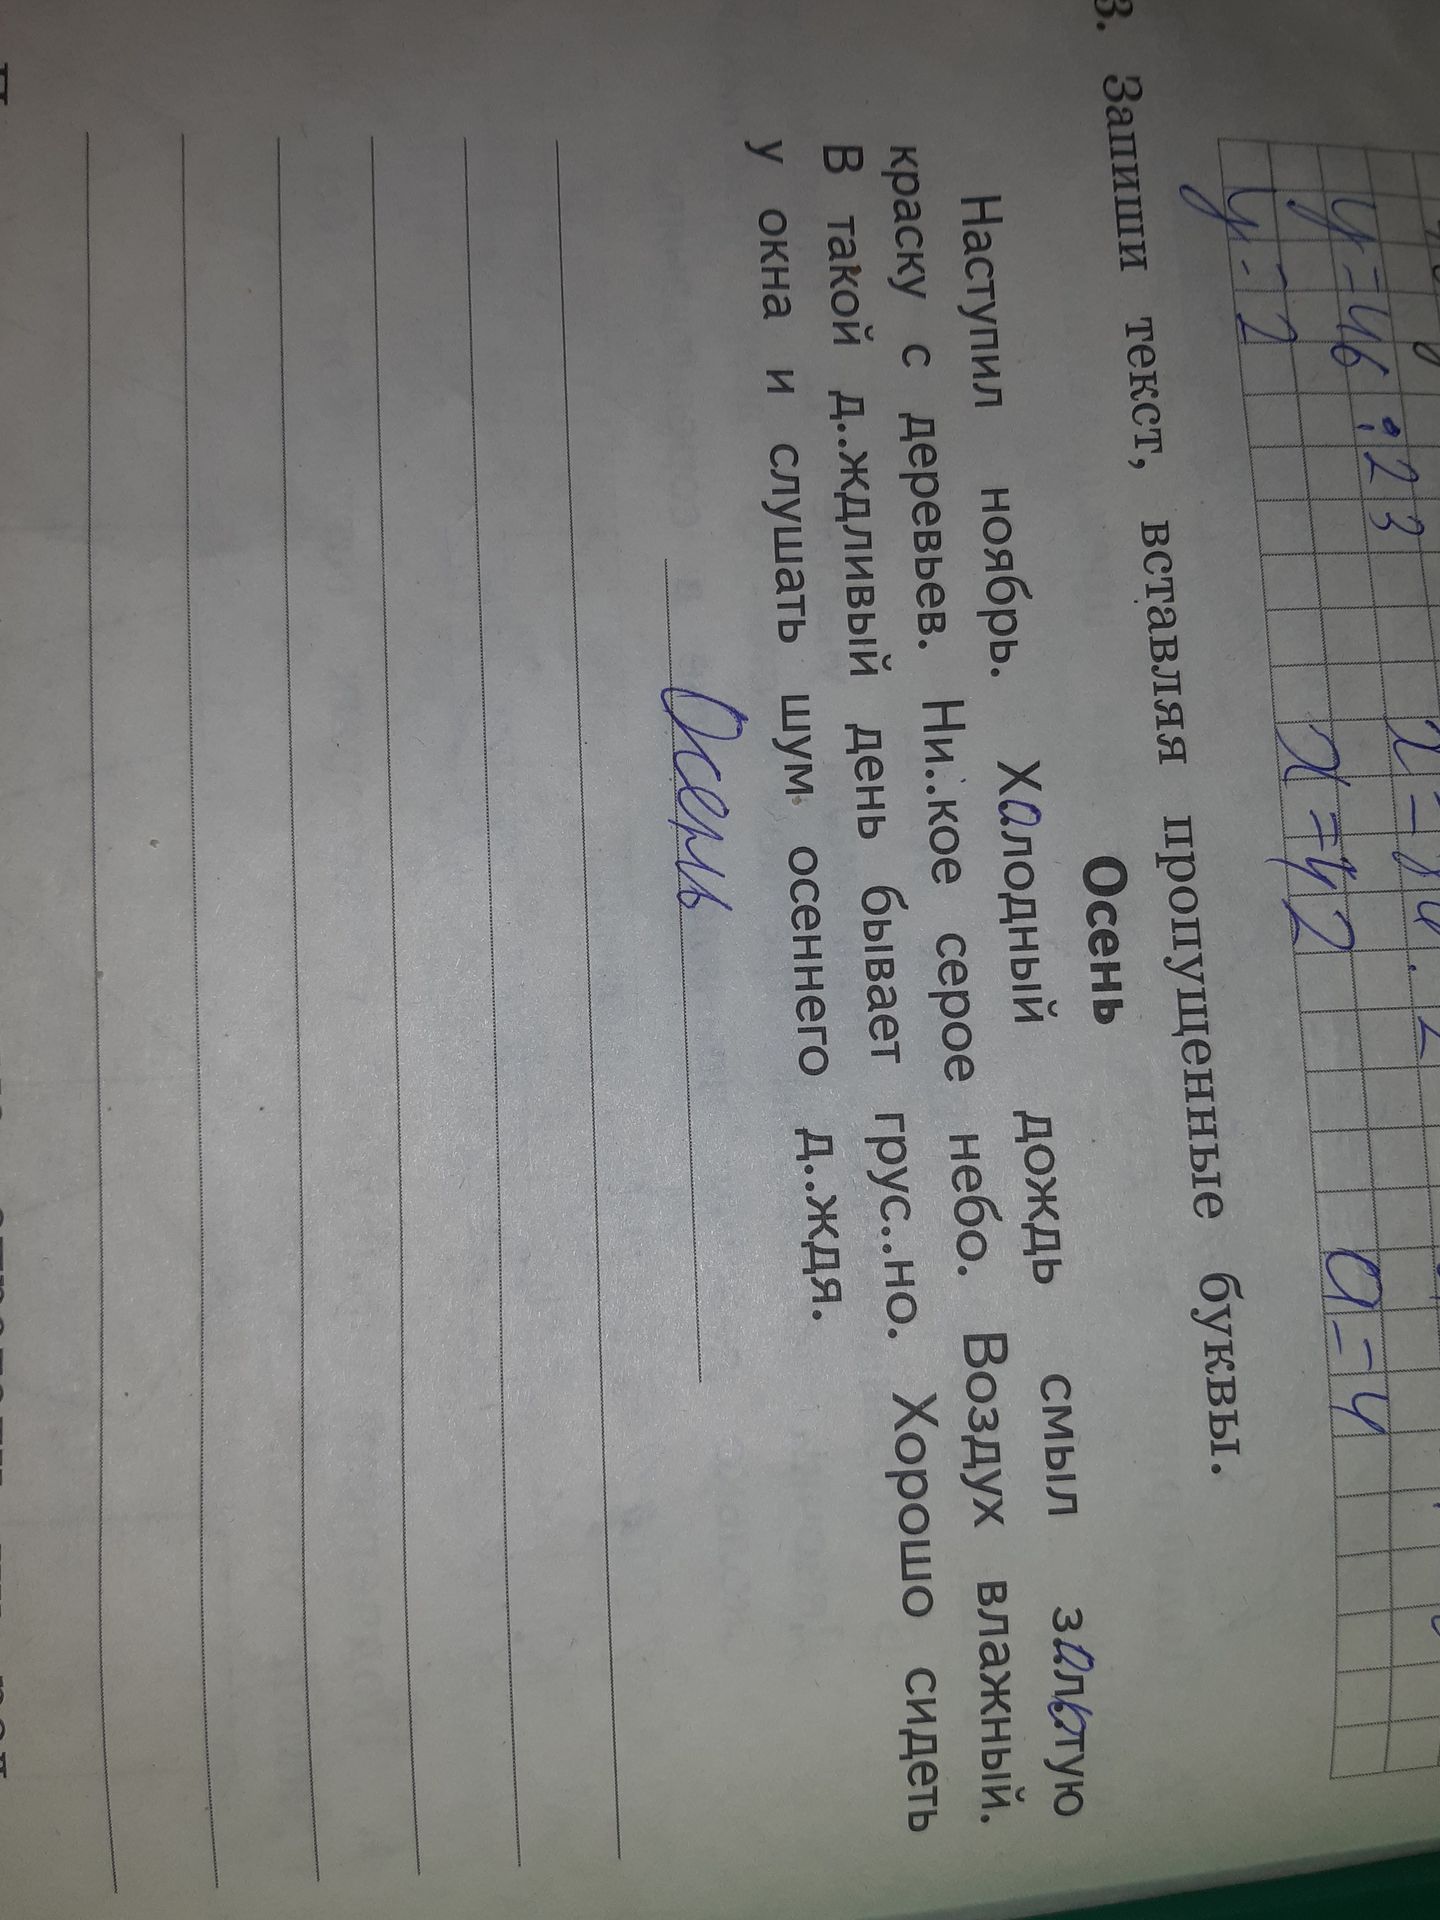 y = 46 : 23
y = 2
x = 42
a = 4
3. Запиши текст, вставляя пропущенные буквы.
Осень
Наступил ноябрь. Халодный дождь смыл зальтую
краску с деревьев. Ни..кое серое небо. Воздух влажный.
В такой д..ждливый день бывает грус..но. Хорошо сидеть
у окна и слушать шум осеннего д..ждя.
Осень